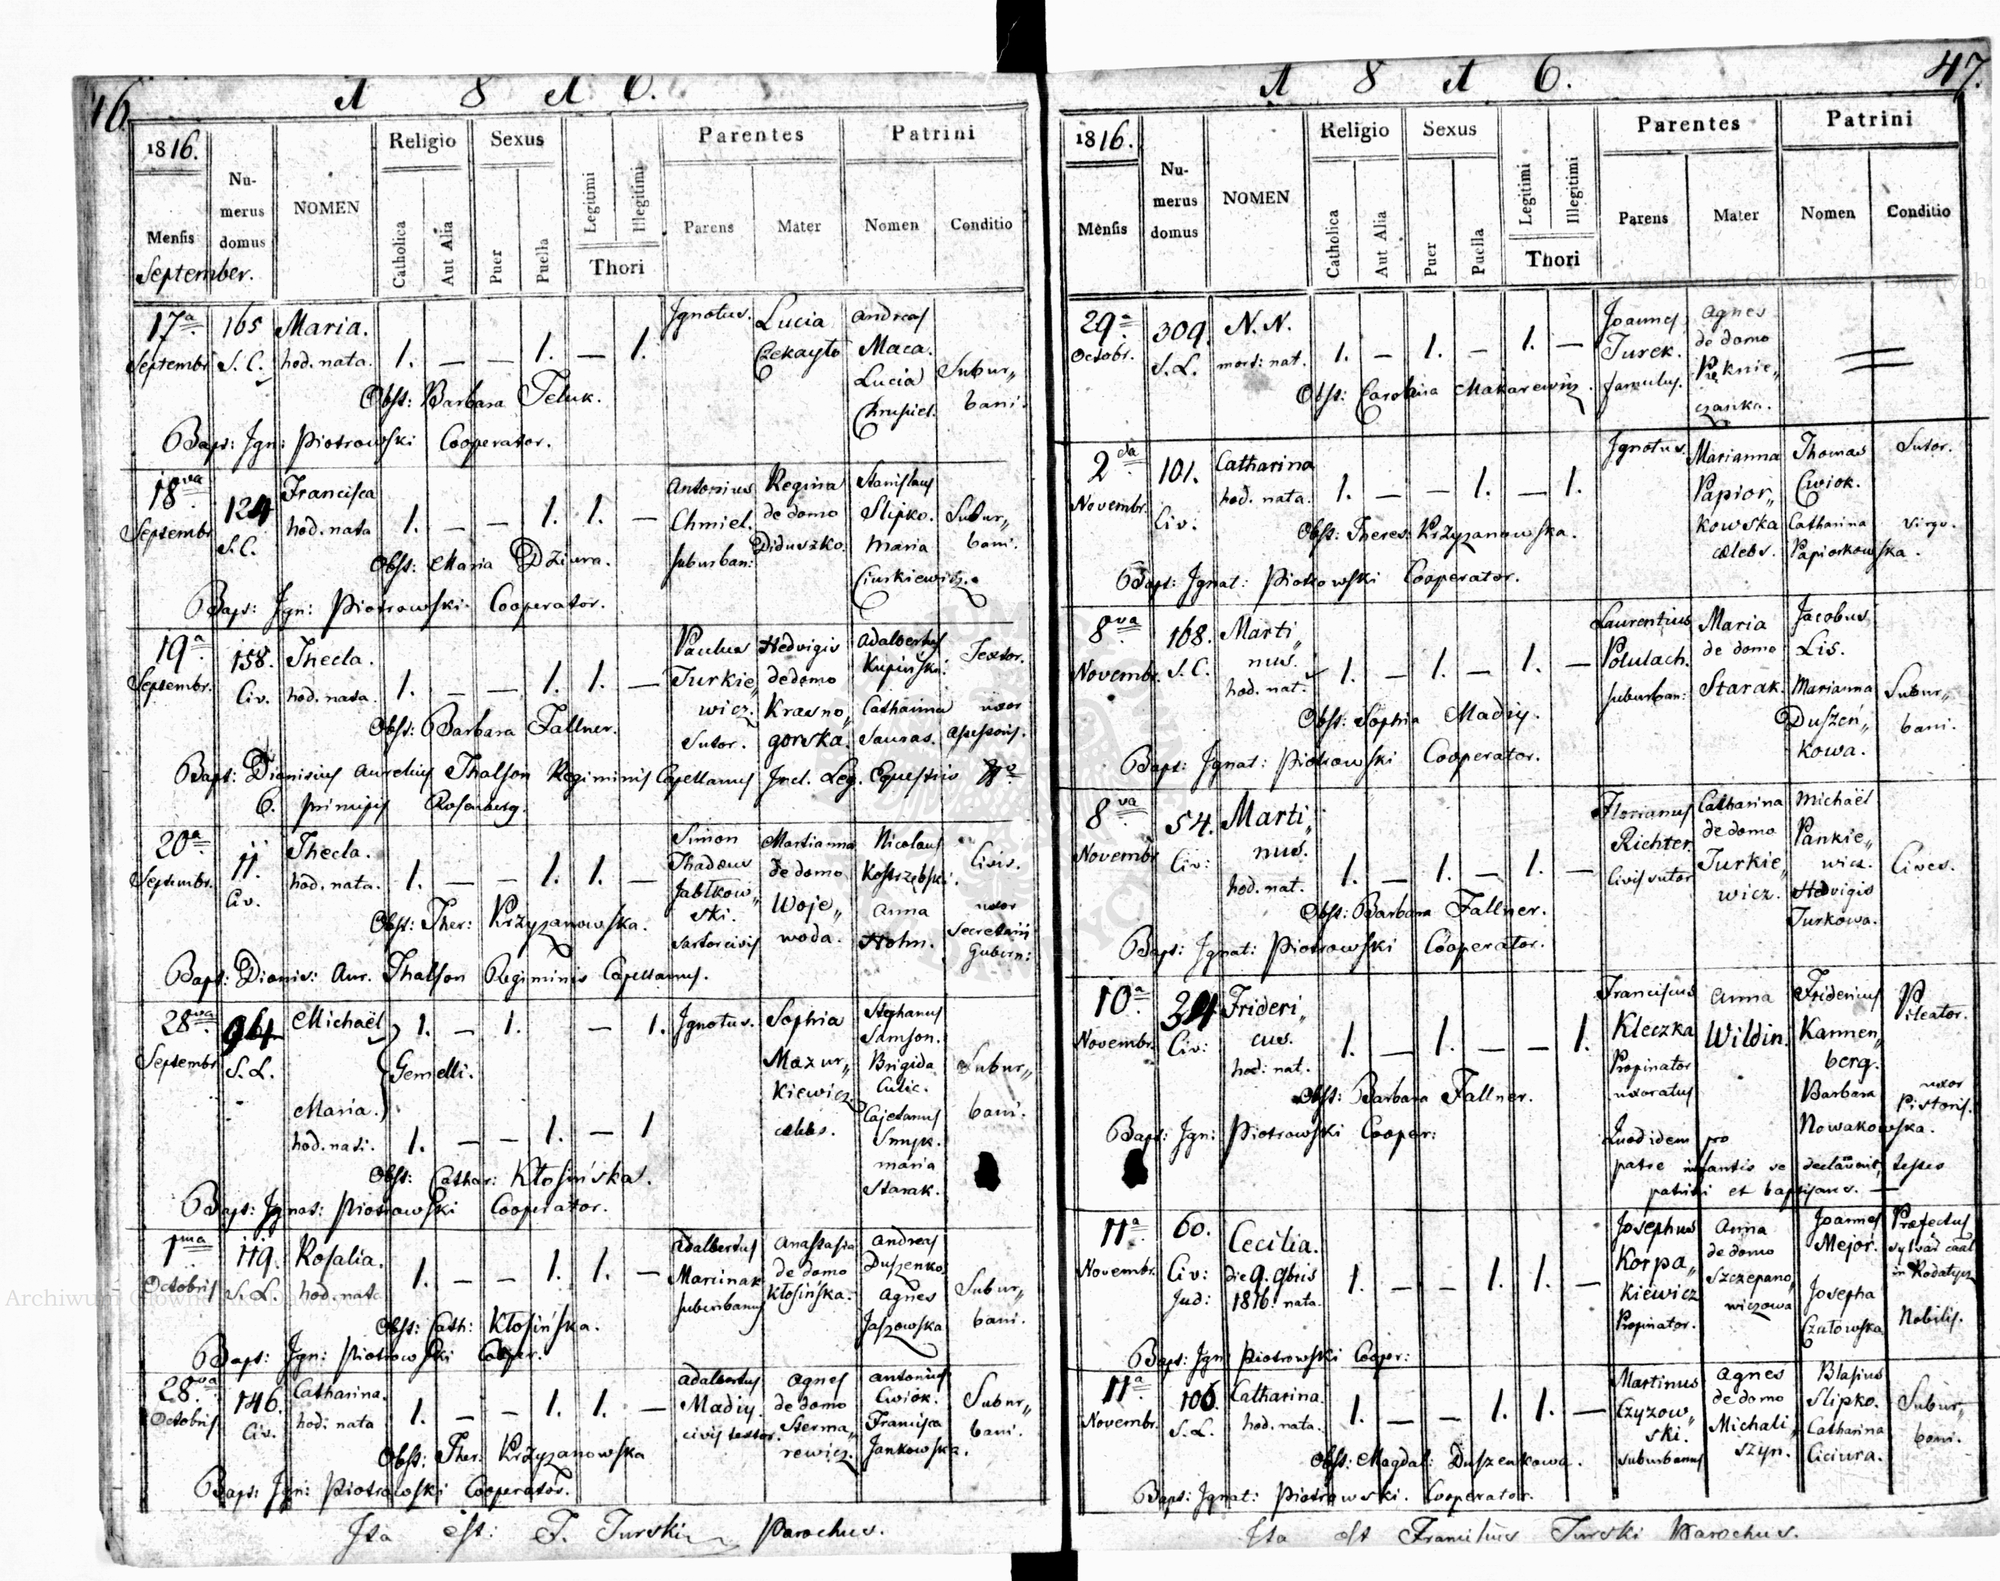 46.
1 8 1 6.
1816.
Numerus domus
NOMEN
Religio
Sexus
Parentes
Patrini
Catholica
Aut Alia
Puer
Puella
Legitimi
Illegitimi
Thori
Parens
Mater
Nomen
Conditio
Mensis
September.
17a Septembr. 165 S. C. Maria. hod. nata. 1. — — 1. — 1. Ignotus. Lucia Czekayło Andreas Maca. Lucia Chrusciel. Subur„ bani.
Obst: Barbara Teluk.
Bapt: Ign: Piotrowski Cooperator.
18va Septembr 124 S. C. Francisca hod. nata 1. — — 1. 1. — Antonius Chmiel. suburban: Regina de domo Diduszko. Stanislaus Slipko. Maria Ciurkiewicz. Subur„ bani.
Obst: Maria Dziura.
Bapt: Ign: Piotrowski Cooperator.
19a Septembr. 158. Civ. Thecla. hod. nata. 1. — — 1. 1. — Paulus Turkie„ wicz. Sutor. Hedvigis de domo Krasno„ gorska. Adalbertus Kupinski. Catharina Sauras. Textor. uxor assessoris.
Obst: Barbara Fallner.
Bapt: Dionisius Aurelius Thalson Regiminis Capellanus Incl. Leg. Equestris
6. principis Rosenberg.
20a Septembr. 11. Civ. Thecla. hod. nata. 1. — — 1. 1. — Simon Thadeus Jabłkow„ ski. sartor civis Marianna de domo Woje„ woda. Nicolaus Kostrzębski. Anna Hohn. Civis. uxor Secretarii Gubern:
Obst: Ther: Krzyzanowska.
Bapt: Dionis: Aur. Thalson Regiminis Capellanus.
28va Septembr 94 S. L. Michaël 1. — 1. — 1. Ignotus. Sophia Mazur„ kiewicz cælebs. Stephanus Samson. Brigida Culic. Cajetanus Snyk. Maria Starak. Subur„ bani.
Gemelli.
Maria. hod. nati. 1. — — 1. — 1
Obst: Cathar: Kłosińska.
Bapt: Ignat: Piotrowski Cooperator.
1ma Octobris 119. S. L. Rosalia. hod. nata 1. — — 1. 1. — Adalbertus Marcinak suburbanus Anastasia de domo Kłosińska. Andreas Duszenko. Agnes Jaszowska Subur„ bani.
Obst: Cath: Kłosińska.
Bapt: Ign: Piotrowski Cooper.
28va Octobris 146. Civ. Catharina. hod: nata 1. — — 1. 1. — Adalbertus Madiy. civis textor. Agnes de domo Sterma„ rewicz. Antonius Cwiok. Francisca Jankowska. Subur„ bani.
Obst: Ther: Krzyzanowska
Bapt: Ign: Piotrowski Cooperator.
Ita est: F. Turski Parochus.
47.
1 8 1 6.
1816.
Numerus domus
NOMEN
Religio
Sexus
Parentes
Patrini
Catholica
Aut Alia
Puer
Puella
Legitimi
Illegitimi
Thori
Parens
Mater
Nomen
Conditio
Mensis
29a Octobr. 309. S. L. N. N. mort: nat. 1. — 1. — 1. — Joannes Turek. famulus. Agnes de domo Pięknie„ czanka.
Obst: Carolina Makarewicz.
2da Novembr. 101. Civ. Catharina hod. nata. 1. — — 1. — 1. Ignotus. Marianna Papior„ kowska cælebs. Thomas Cwiok. Catharina Papiorkowska. Sutor. virgo.
Obst: Theres: Krzyzanowska.
Bapt: Ignat: Piotrowski Cooperator.
8va Novembr. 168. S. C. Marti„ nus. hod. nat. 1. — 1. — 1. — Laurentius Polulach. suburban: Maria de domo Starak. Jacobus Lis. Marianna Duszeń„ kowa. Subur„ bani.
Obst: Sophia Madiy.
Bapt: Ignat: Piotrowski Cooperator.
8va Novembr 54. Civ: Marti„ nus. hod. nat. 1. — 1. — 1. — Florianus Richter. Civis sutor Catharina de domo Turkie„ wicz. Michaël Pankie„ wicz. Hedvigis Turkowa. Cives.
Obst: Barbara Fallner.
Bapt: Ignat: Piotrowski Cooperator.
10a Novembr. 34 Civ: Frideri„ cus. hod: nat. 1. — 1. — — 1. Franciscus Kleczka Propinator uxoratus Anna Wildin. Fridericus Kannen„ berg. Barbara Nowakowska. Pileator. uxor Pistoris.
Obst: Barbara Fallner.
Quod idem pro patre infantis se declaravit, testes patrini et baptisans. —
Bapt: Ign: Piotrowski Cooper:
11a Novembr. 60. Civ: Jud: Cecilia. die 9. 9bris 1816. nata. 1. — — 1. 1. — Josephus Korpa„ kiewicz Propinator. Anna de domo Szczepano„ wiczowa Joannes Mejor. Josepha Czułowska Præfectus sylvar. caal. in Rodatycz Nobilis.
Bapt: Ign: Piotrowski Cooper:
11a Novembr. 106. S. L. Catharina. hod. nata. 1. — — 1. 1. — Martinus Czyzow„ ski. suburbanus Agnes de domo Michali„ szyn. Blasius Slipko. Catharina Ciciura. Subur„ bani.
Obst: Magdal: Duszenkowa.
Bapt: Ignat: Piotrowski. Cooperator.
Ita est Franciscus Turski Parochus.